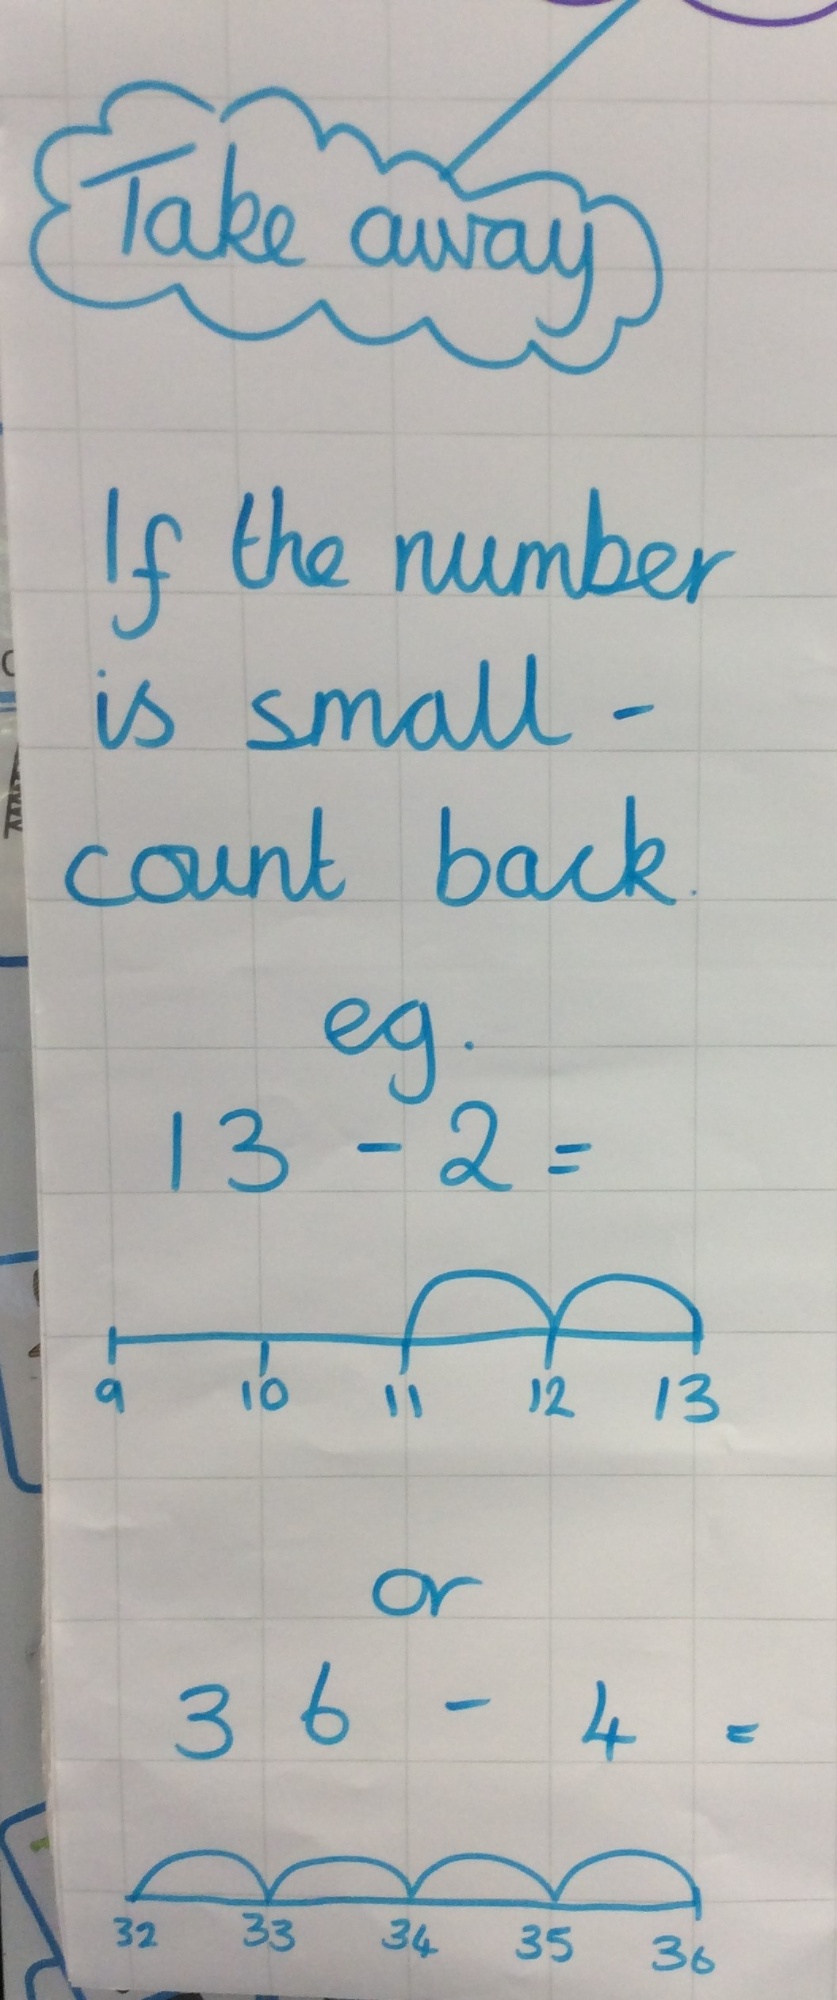 Take away
If the number
is small -
count back.
eg.
13 - 2 =
9 10 11 12 13
or
36 - 4 =
32 33 34 35 36